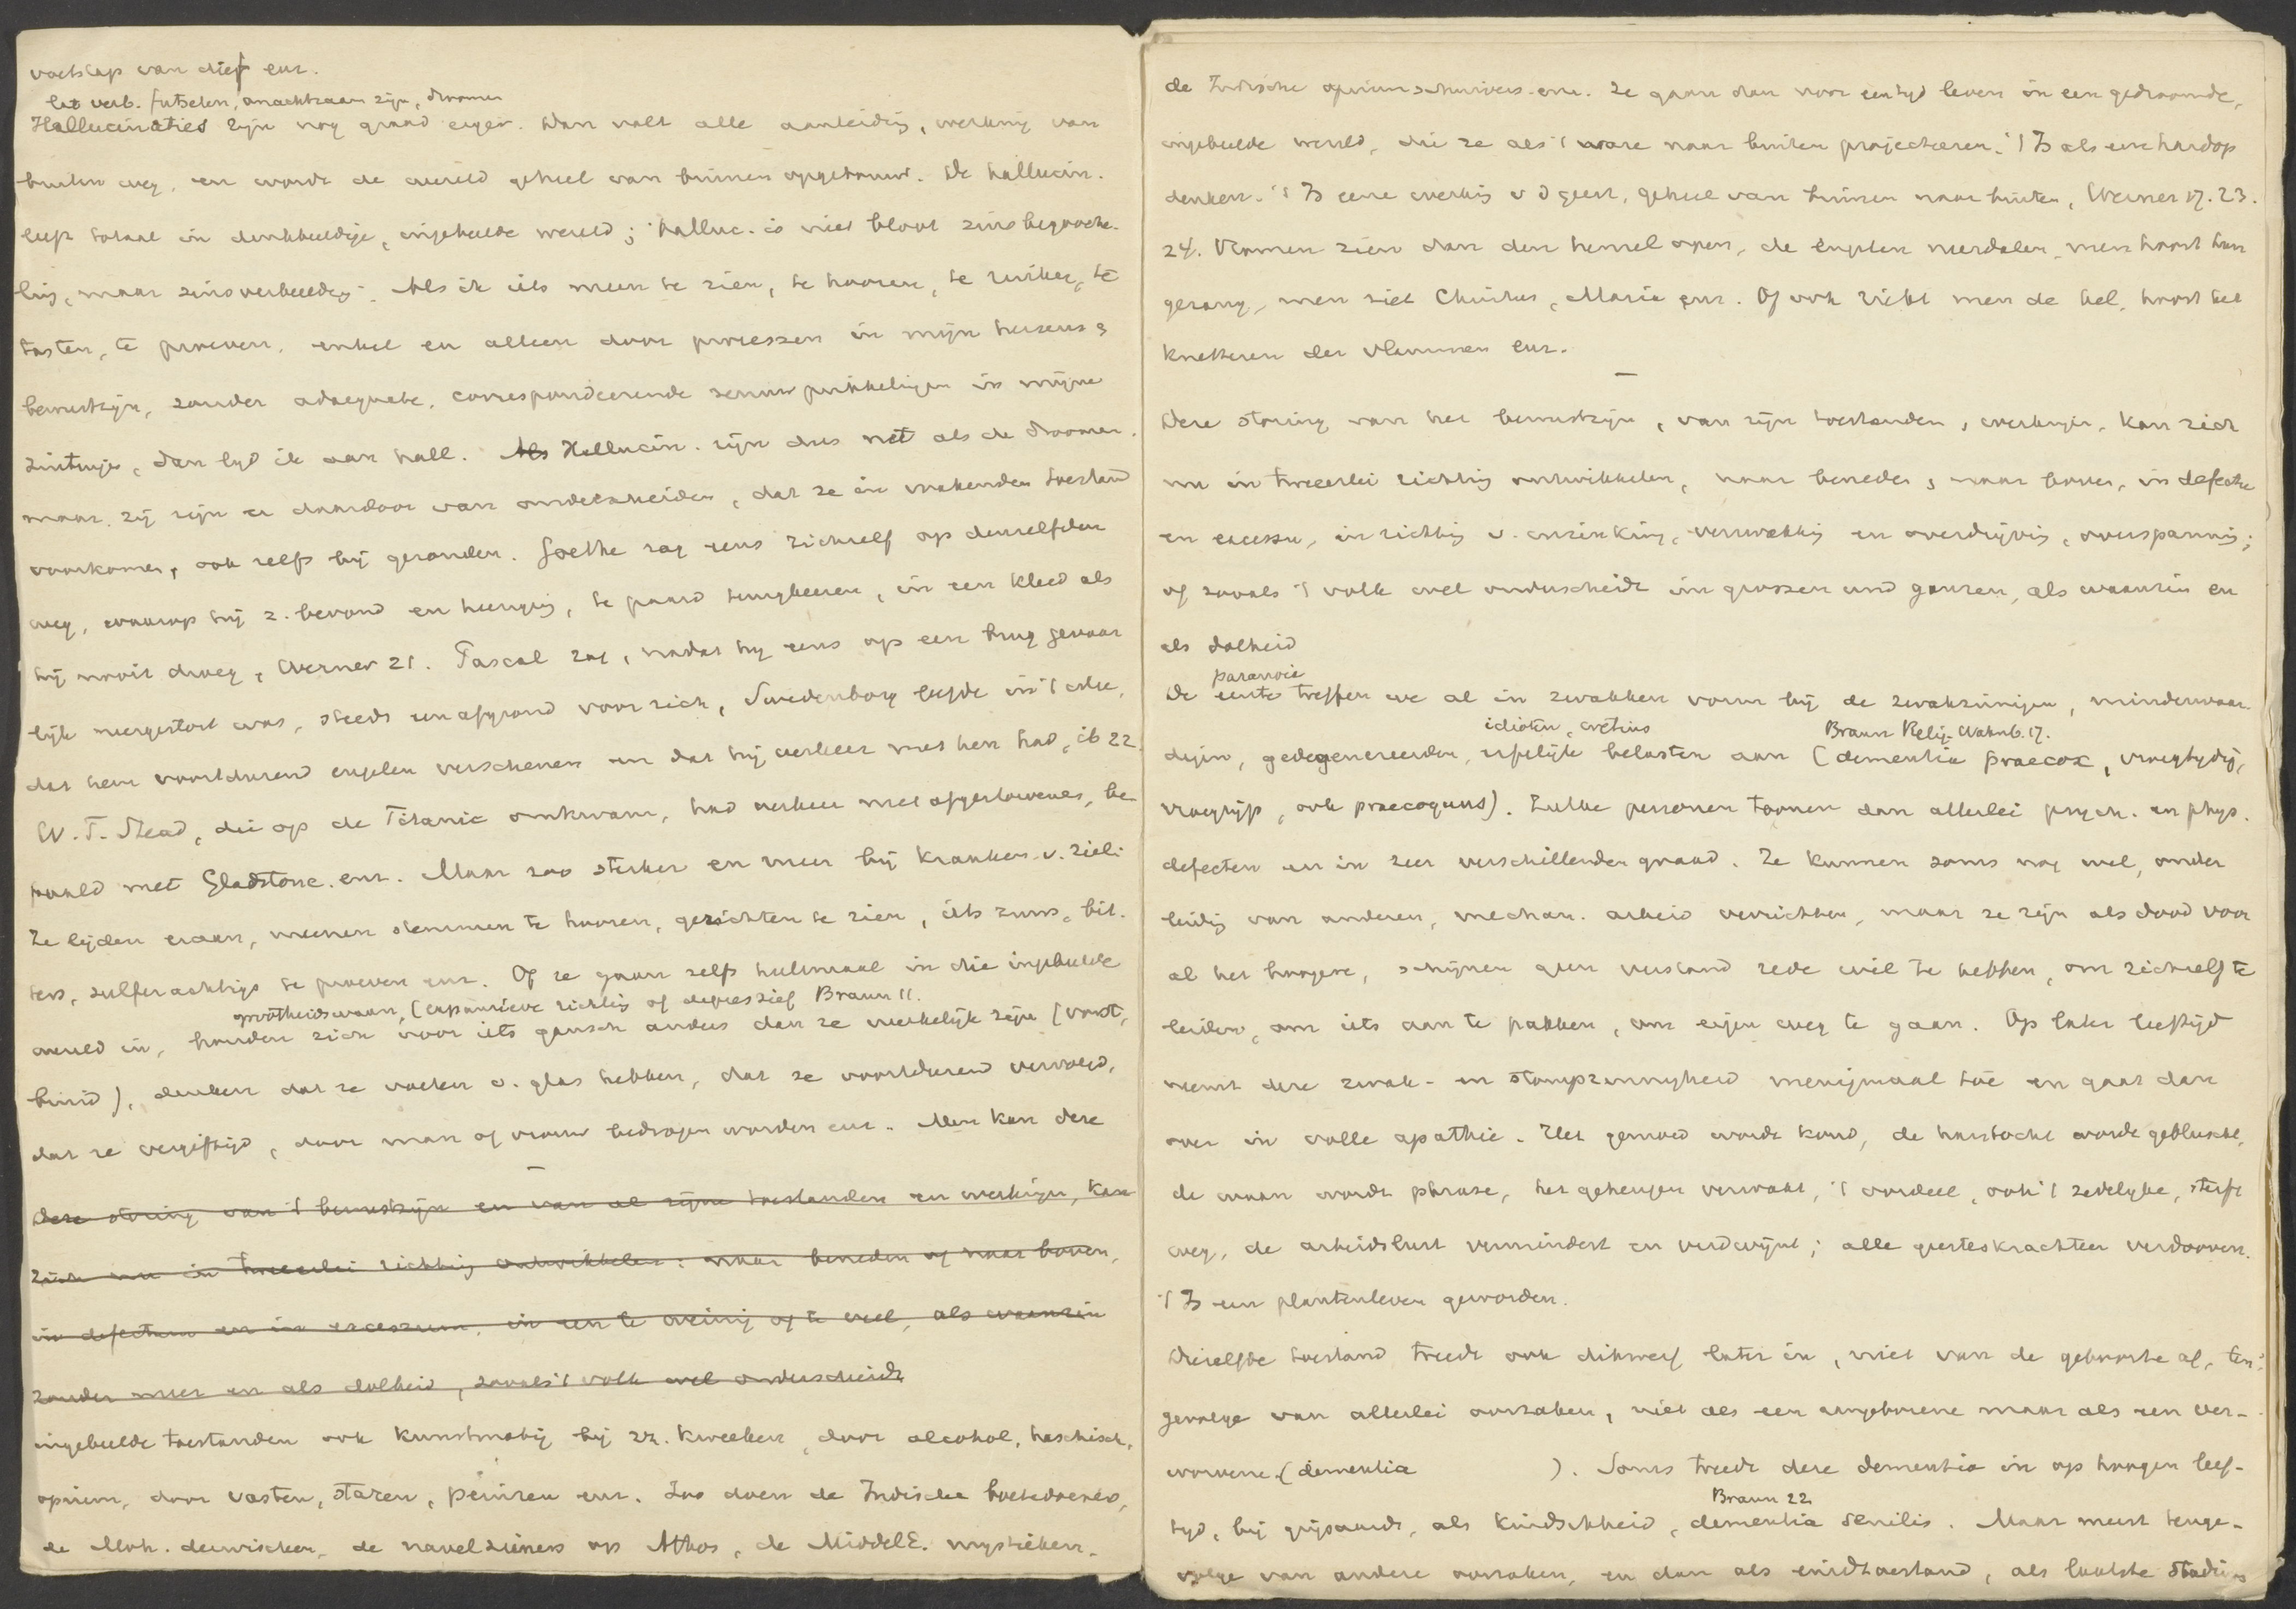 voetstap van dief enz.
het verb. futselen, onachtzaam zijn, droomen
Hallucinaties zijn nog graad erger. Dan valt alle aanleidig, werking van
buiten weg, en wordt de wereld geheel van binnen opgebouwd. De hallucin.
leeft totaal in denkbeeldige, ingebeelde wereld; halluc. is niet bloot zinsbegooche-
ling, maar zinsverbeeldg. Als ik iets meen te zien, te hooren, te ruiken, te
tasten, te proeven, enkel en alleen door processen in mijn hersens,
bewustzijn, zonder adaequate, correspondeerende zenuwprikkelingen in mijne
zintuigen, dan lijd ik aan hall. Als Hallucin. zijn dus net als de droomen,
maar zij zijn er daardoor van onderscheiden, dat ze in wakenden toestand
voorkomen, ook zelfs bij gezonden. Goethe zag eens zichzelf op denzelfden
weg, waarop hij z. bevond en heenging, te paard terugkeeren, in een kleed als
hij nooit droeg, Werner 21. Pascal zag, nadat hij eens op een brug gevaar
lijk neergestort was, steeds een afgrond voor zich, Swedenborg leefde in 't idee,
dat hem voortdurend engelen verschenen en dat hij verkeer met hen had, ib 22.
W. T. Stead, die op de Titanic omkwam, had verkeer met afgestorvenen, be-
paald met Gladstone. enz. Maar zoo sterker en meer bij kranken v. ziel:
Ze lijden eraan, meenen stemmen te hooren, gezichten te zien, iets zuurs, bit-
ters, zulferachtigs te proeven enz. Of ze gaan zelfs helemaal in die ingebeelde
grootheidswaan, (expansieve richtig of depressief Braun 11.
wereld in, houden zich voor iets gansch anders dan ze werkelijk zijn (vorst,
bruid), denken dat ze voeten v. glas hebben, dat ze voortdurend vervolgd,
dat ze vergiftigd, door man of vrouw bedrogen worden enz. Men kan deze
Deze storing van 't bewustzijn en van al zijne toestanden en werkingen, kan
zich nu in tweeerlei richting ontwikkelen: naar beneden of naar boven,
in defectum en in excessum, in een te weinig of te veel, als waanzin
zonder meer en als dolheid, zooals 't volk wel onderscheidt
ingebeelde toestanden ook kunstmatig bij zn. kweeken, door alcohol, haschisch,
opium, door vasten, staren, peinzen enz. Zoo doen de Indische boetedoeners,
de Moh. derwischen, de navelzieners op Athos, de MiddelE. mystieken,
de Indische opiumschuivers enz. Ze gaan dan voor een tijd leven in een gedroomde,
ingebeelde wereld, die ze als 't ware naar buiten projecteeren. 't Is als een hardop
denken. 't Is eene werking v d geest, geheel van binnen naar buiten, Werner 17. 23.
24. Vromen zien dan den hemel open, de engelen neerdalen, men hoort hun
gezang, men ziet Christus, Maria enz. Of ook ziet men de hel, hoort het
knetteren der vlammen enz.
Deze storing van het bewustzijn, van zijn toestanden, werkingen, kan zich
nu in tweeerlei richting ontwikkelen, naar beneden, naar boven, in defectu
en excessu, in richting v. inzinking, verzwakking en overdrijving, overspanning;
of zooals 't volk wel onderscheidt im grossen und ganzen, als waanzin en
als dolheid
paranoia
De eerste treffen we al in zwakken vorm bij de zwakzinnigen, minderwaar-
idioten, cretins Braun Relig. Wahnb. 17.
digen, gedegenereerden, erfelijk belasten aan (dementia praecox, vroegtijdig,
vroegrijp, ook praecoquus). Zulke personen toonen dan allerlei psych. en phys.
defecten en in zeer verschillenden graad. Ze kunnen soms nog wel, onder
leidig van anderen, mechan. arbeid verrichten, maar ze zijn als dood voor
al het hoogere, schijnen geen verstand rede wil te hebben, om zichzelf te
leiden, om iets aan te pakken, om eigen weg te gaan. Op later leeftijd
neemt deze zwak- en stompzinnigheid menigmaal toe en gaat dan
over in volle apathie. Het gemoed wordt koud, de hartstocht wordt gebluscht,
de waan wordt phrase, het geheugen verzwakt, 't oordeel, ook 't zedelijke, sterft
weg, de arbeidslust vermindert en verdwijnt; alle geesteskrachten verdooven.
't Is een plantenleven geworden.
Dezelfde toestand treedt ook dikwerf later in, niet van de geboorte af, ten-
gevolge van allerlei oorzaken, niet als een aangeborene maar als een ver-
worvene. (dementia ). Soms treedt deze dementia in op hoogen leef-
Braun 22
tijd, bij grijsaards, als kindschheid, dementia senilis. Maar meest tenge-
volge van andere oorzaken, en dan als eindtoestand, als laatste stadium